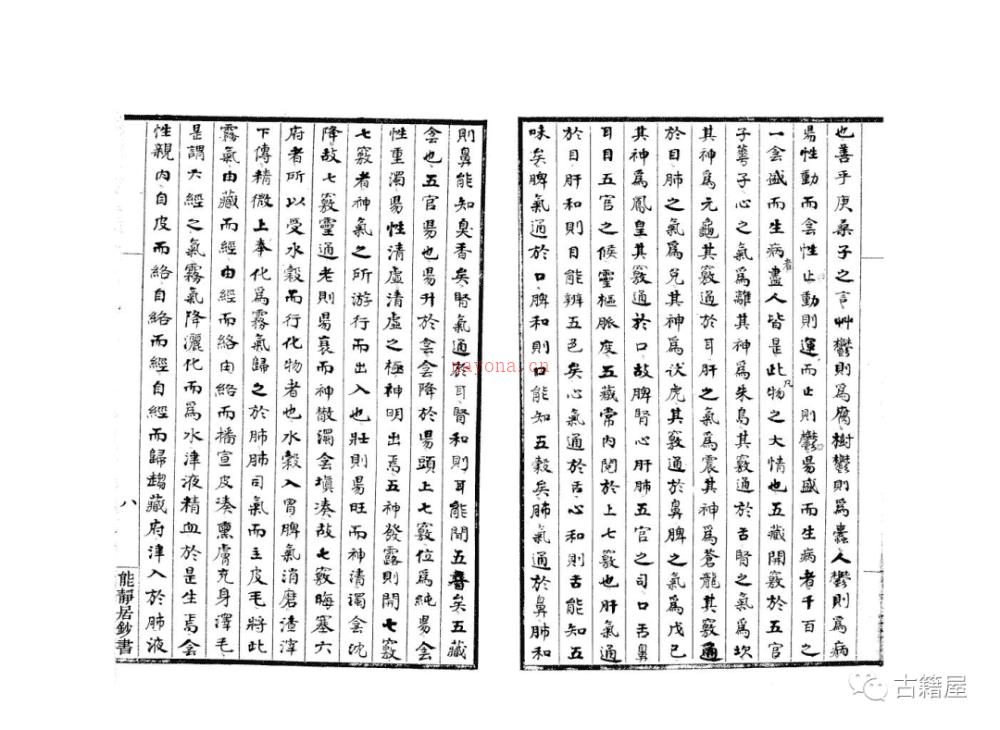 也善乎庚桑子之言艸鬱則爲腐樹鬱則爲蠹人鬱則爲病
昜性動而侌性止動則運而止則鬱昜盛而生病者千百之
一侌盛而生病者盡人皆是此凡物之大情也五藏開竅於五官
子蕚子心之气爲離其神爲朱鳥其竅通於舌腎之气爲坎
其神爲元龜其竅通於耳肝之气爲震其神爲蒼龍其竅通
於目肺之气爲兌其神爲伏虎其竅通於鼻脾之气爲戊己
其神爲鳳皇其竅通於口故脾腎心肝肺五官之司口舌鼻
耳目五官之候靈樞脈度五藏常内閱於上七竅也肝氣通
於目肝和則目能辨五色矣心氣通於舌心和則舌能知五
味矣脾氣通於口脾和則口能知五穀矣肺氣通於鼻肺和
則鼻能知臭香矣腎氣通於耳腎和則耳能聞五音矣五藏
侌也五官昜也昜升於侌侌降於昜頭上七竅位爲純昜侌
性重濁昜性清虛清虛之極神明出焉五神發露則開七竅
七竅者神氣之所游行而出入也壯則昜旺而神清濁侌沈
降故七竅靈通老則昜衰而神散濁侌塡凑故七竅晦塞六
府者所以受水穀而行化物者也水穀入胃脾氣消磨渣滓
下傳精微上奉化爲霧氣歸之於肺肺司氣而主皮毛將此
霧氣由藏而經由經而絡由絡而播宣皮凑熏膚充身澤毛
是謂六經之氣霧氣降灑化而爲水津液精血於是生焉侌
性親内自皮而絡自絡而經自經而歸趨藏府津入於肺液
八
能靜居鈔書
nayona.cn
古籍屋